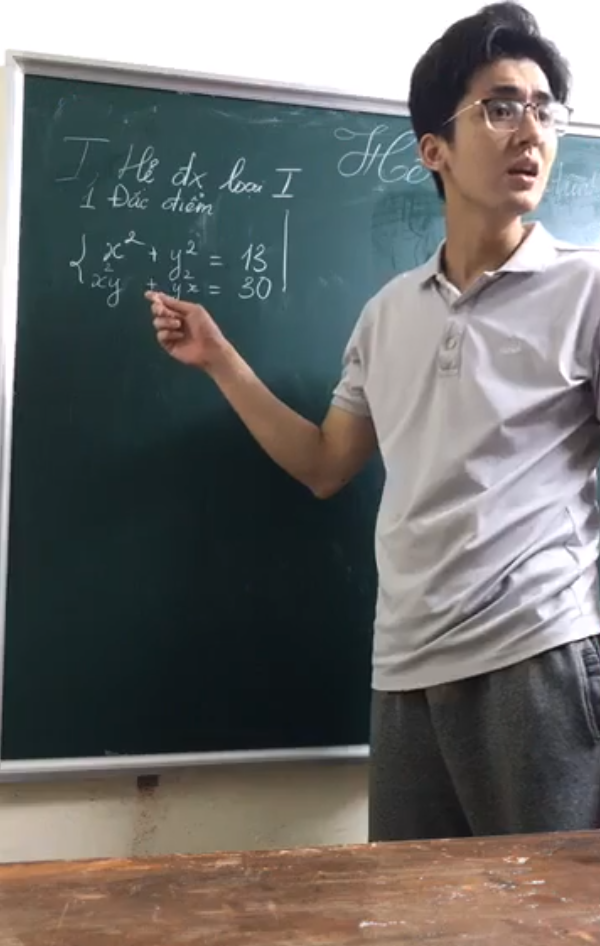 I, Hệ đx loại I
1 Đắc điểm
{ x² + y² = 13
x²y + y²x = 30